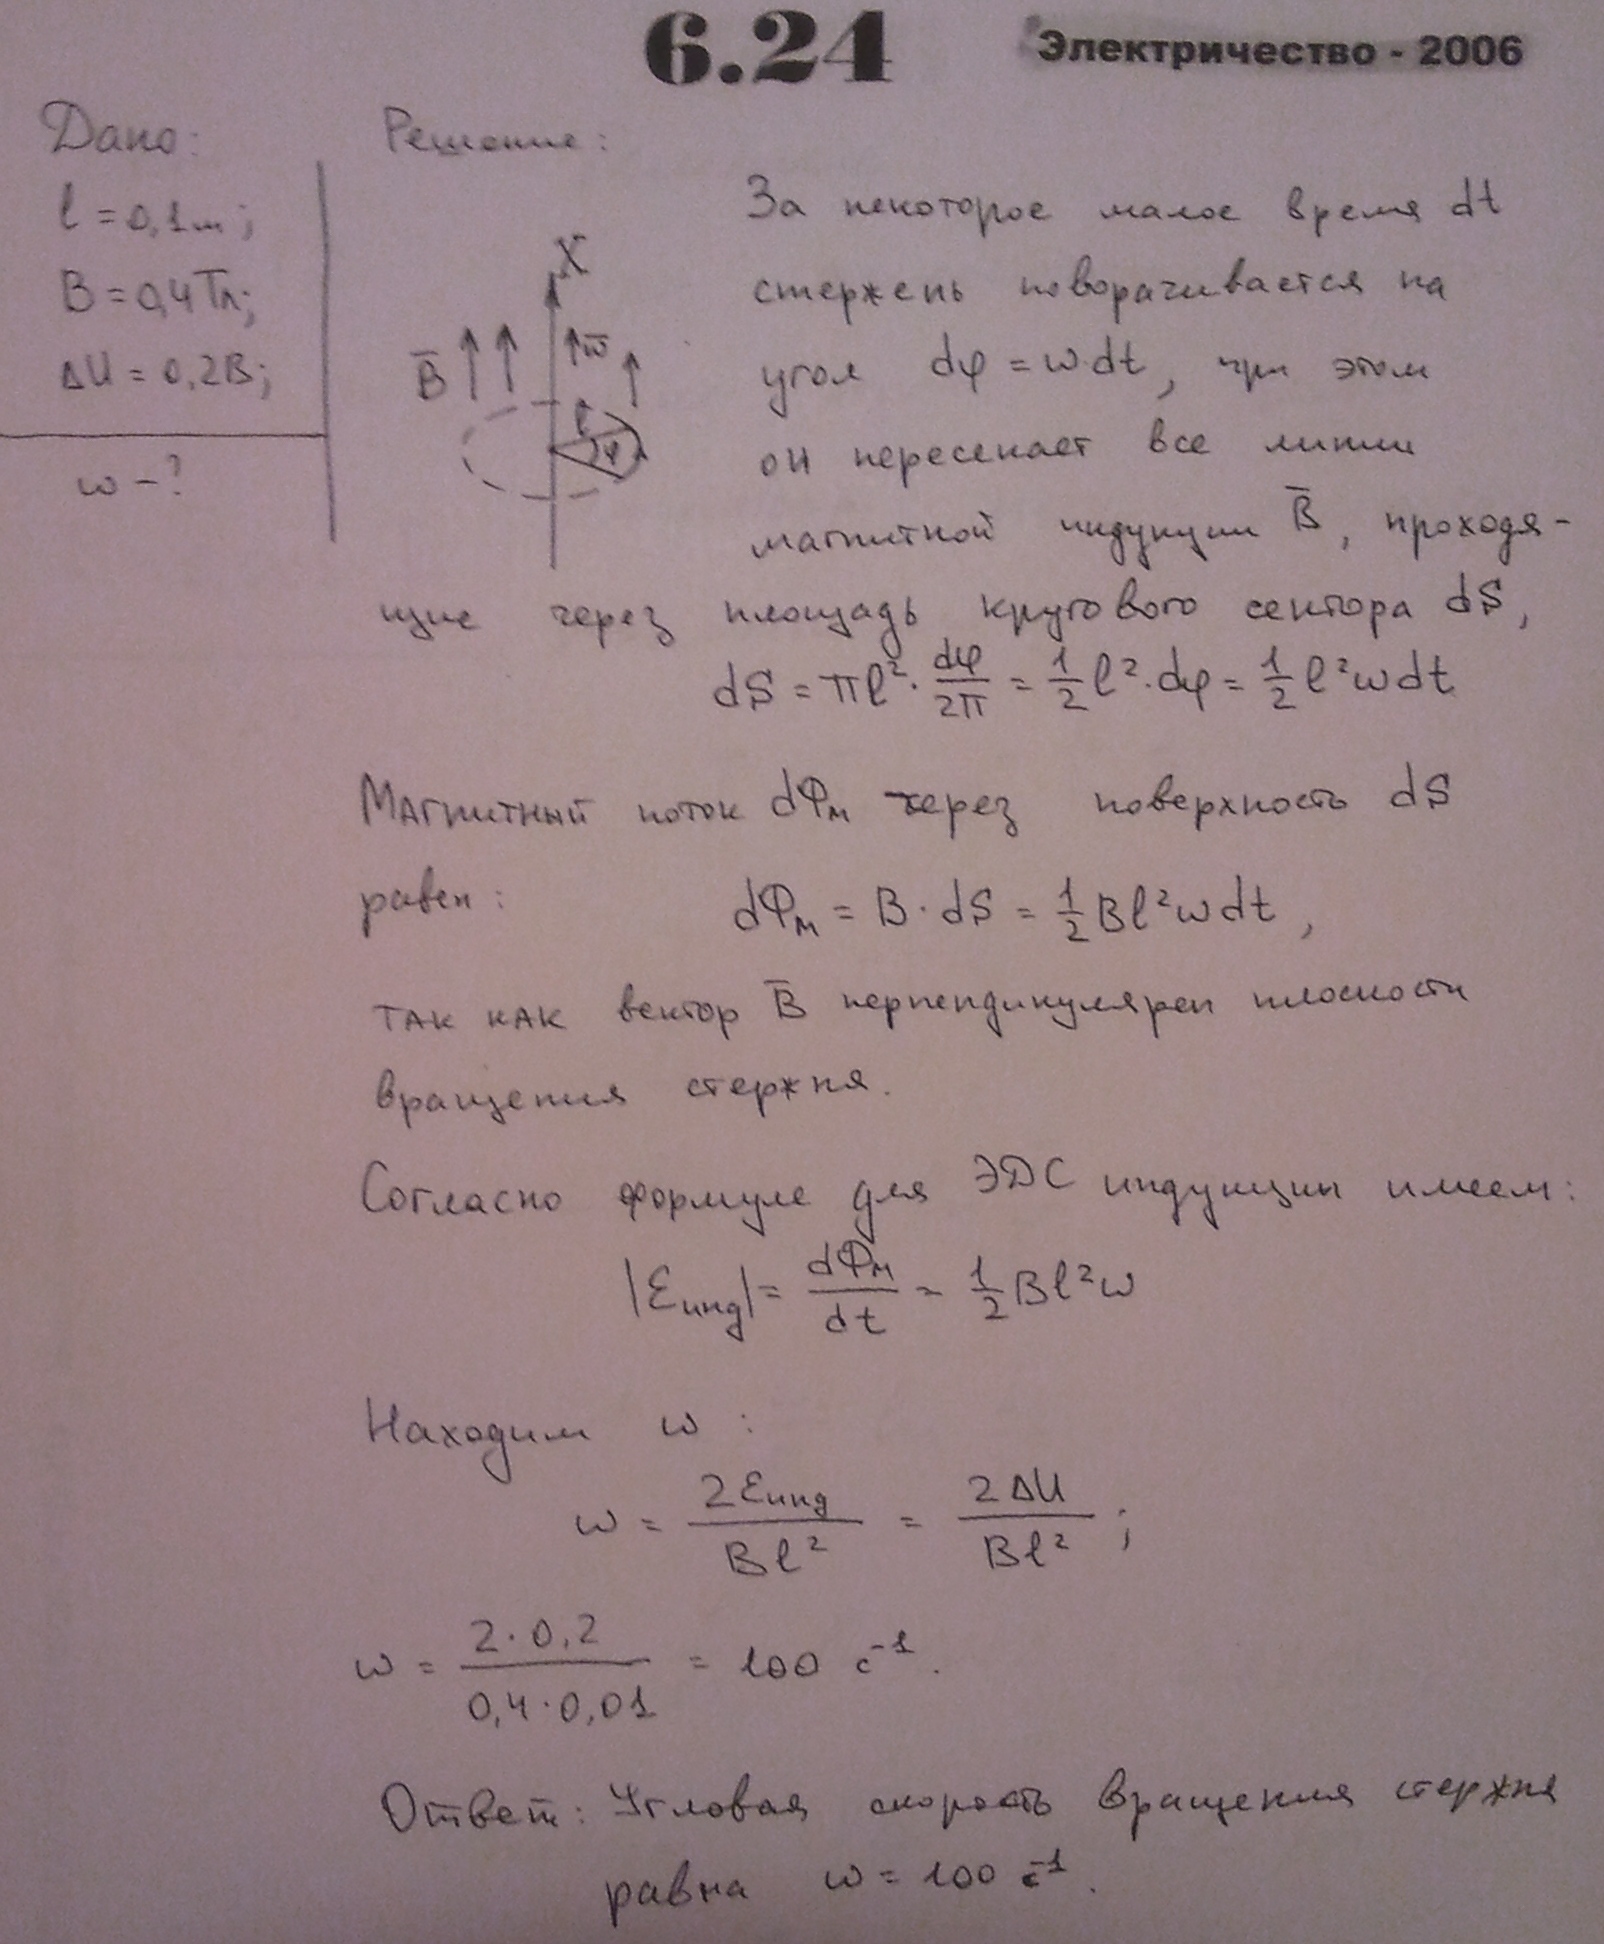 6.24 Электричество - 2006
Дано:
l = 0,1 м;
B = 0,4 Тл;
ΔU = 0,2 В;
ω - ?
Решение:
X
ω̄
B̄
l
dφ
За некоторое малое время dt
стержень поворачивается на
угол dφ = ω·dt, при этом
он пересекает все линии
магнитной индукции B̄, проходя-
щие через площадь кругового сектора dS,
dS = πl² · dφ/2π = 1/2 l² · dφ = 1/2 l² ω dt
Магнитный поток dФм через поверхность dS
равен: dФм = B · dS = 1/2 Bl² ω dt,
так как вектор B̄ перпендикулярен плоскости
вращения стержня.
Согласно формуле для ЭДС индукции имеем:
|Ɛинд| = dФм/dt = 1/2 Bl² ω
Находим ω:
ω = 2Ɛинд/Bl² = 2ΔU/Bl² ;
ω = 2·0,2/0,4·0,01 = 100 с⁻¹.
Ответ: Угловая скорость вращения стержня
равна ω = 100 с⁻¹.